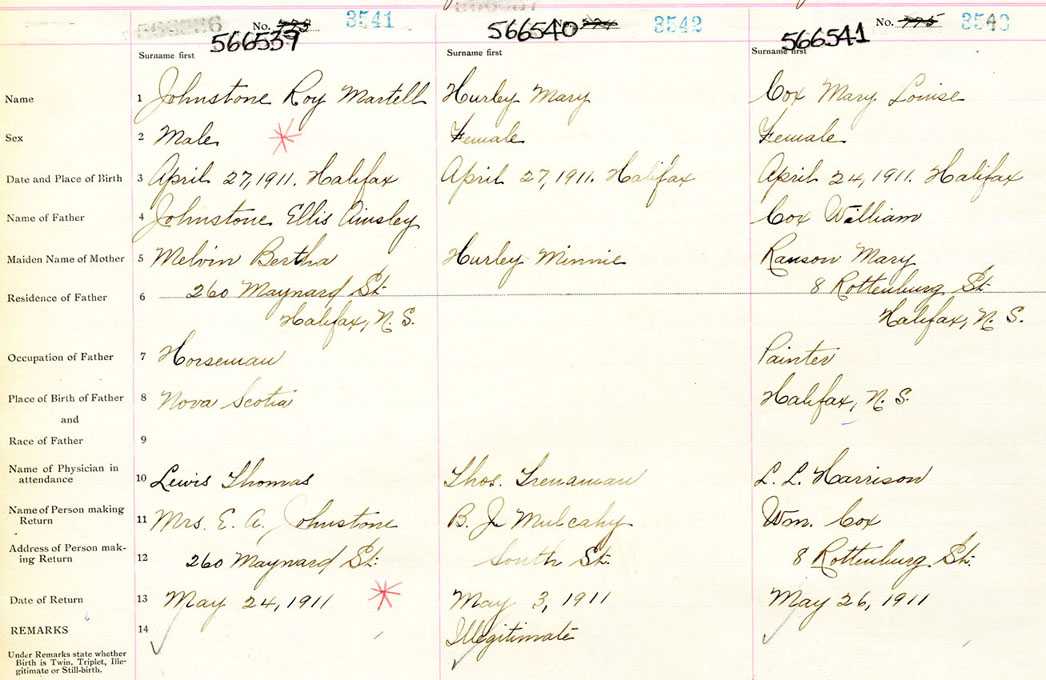 No. 773 3541
566539
No. 774 3542
566540
No. 775 3543
566541
Surname first Surname first Surname first
Name 1 Johnstone Roy Martell Hurley Mary Cox Mary Louise
Sex 2 Male Female Female
Date and Place of Birth 3 April 27, 1911. Halifax April 27, 1911. Halifax April 24, 1911. Halifax
Name of Father 4 Johnstone Ellis Ainsley Cox William
Maiden Name of Mother 5 Melvin Bertha Hurley Minnie Ranson Mary
Residence of Father 6 260 Maynard St. 8 Rottenburg St.
Halifax, N. S. Halifax, N. S.
Occupation of Father 7 Horseman Painter
Place of Birth of Father 8 Nova Scotia Halifax, N. S.
and
Race of Father 9
Name of Physician in
attendance 10 Lewis Thomas Thos. Trenaman L. L. Harrison
Name of Person making
Return 11 Mrs. E. A. Johnstone B. J. Mulcahy Wm. Cox
Address of Person mak-
ing Return 12 260 Maynard St. South St. 8 Rottenburg St.
Date of Return 13 May 24, 1911 May 3, 1911 May 26, 1911
REMARKS 14 Illegitimate
Under Remarks state whether
Birth is Twin, Triplet, Ille-
gitimate or Still-birth.